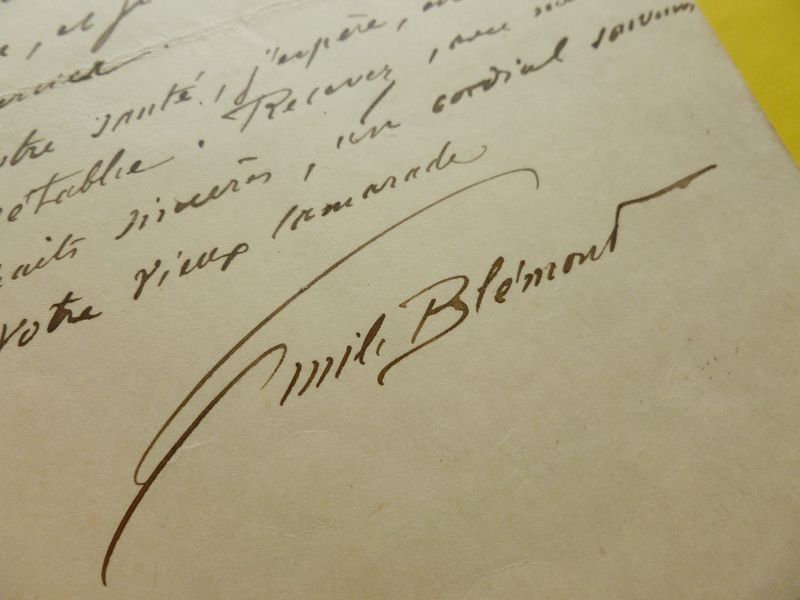 , et je
votre santé, j'espère,
rétablie. Recevez, avec
souhaits sincères, un cordial souvenir
Votre vieux camarade
Emile Blémont